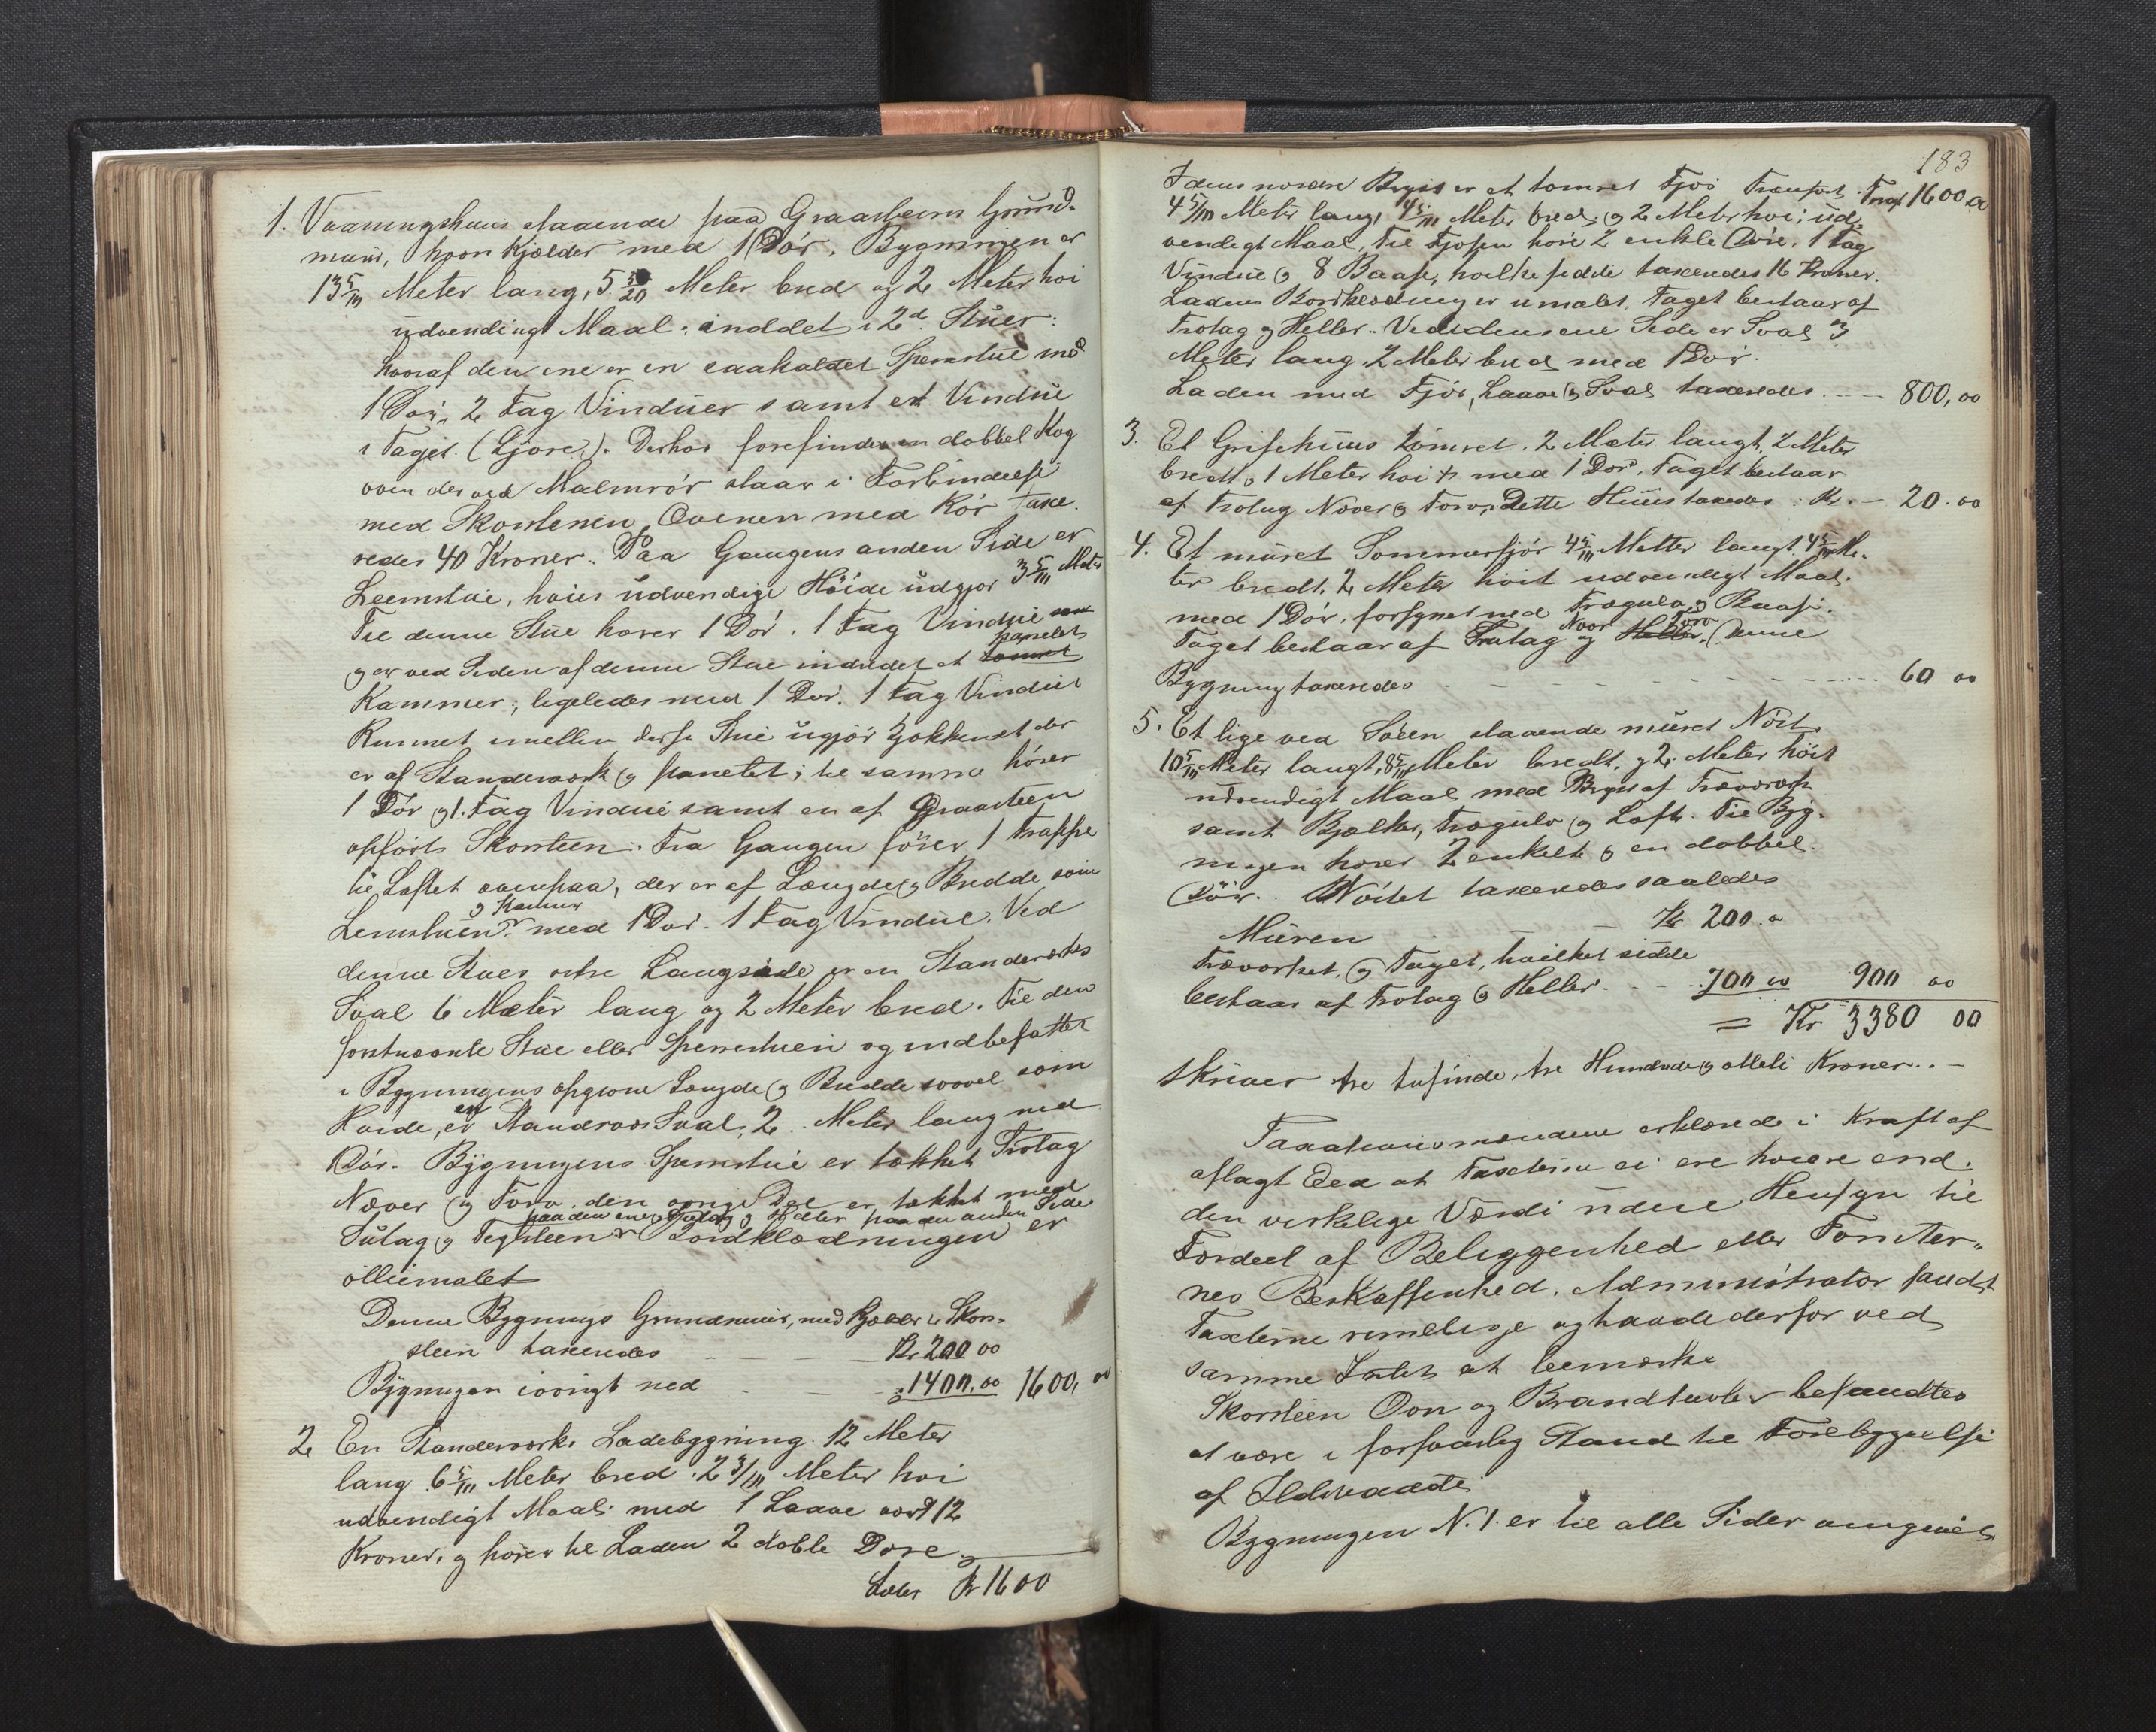 1. Vaaningshuus staaende paa Graasteens Grund-
muur, hvori Kjælder med 1 Dör. Bygningen er
13 5/10 Meter lang, 5 5/20 Meter bred og 2 Meter hoi
udvendingt Maal. inddelt i 2de Stuer:
hvoraf den ene er en saakaldet Sperrstue med
1 Dör, 2 Fag Vinduer samt et Vindue
i Taget (Ljore). Derhos forefindes en dobbel Kog
ovn der ved Malmrör staar i Forbindelse
med Skorstenen, Ovenen med Rör taxe-
redes 40 Kroner. Paa Gangens anden Side er
Leemstue, hvis udvendige Höide udgjor 3 5/10 Meter
Til denne Stue hører 1 Dör. 1 Fag Vindue samt
og er ved Siden af denne Stue indredet et tomret panelet
Kammer, ligeledes med 1 Dör. 1 Fag Vindue
Rummet imellem disse Stue ugjör Kjökkenet der
er af Standerværk og panelet; til samme hörer
1 Dör og 1. Fag Vindue samt en af Graasteen
opfört Skorsteen. Fra Gangen förer 1 Trappe
til Loftet ovenpaa, der er af Længde og Bredde som
Lemstuen og Kammer med 1 Dör. 1 Fag Vindue. Ved
denne Stues østre Langside er en Standerværks
Sval 6 Meter lang og 2 Meter bred. Til den
forstnævnte Stue eller Sperrstuen og indbefattet
i Bygningens opgivne Længde og Bredde saavel som
Høide, er en Standværks Sval, 2 Meter lang med
1 Dör. Bygningens Sperrstue er tækket Trotag
Næver og Torv. den øvrige Del er tækket med
paa den ene og Sutag og Heller paa den anden Side
Sutag og Tegsteen Bordklædningen er
olliemalet
Denne Bygnings Grundmuur, med Kjælder & Skor-
steen taxeredes Kr 200 00
Bygningen iøvrigt ved 1400,00 1600, 00
2 En Standerværks Ladebygning. 12 Meter
lang 6 5/10 Meter bred. 2 3/10 Meter hoi
udvendigt Maal. med 1 Laave værd 12
Kroner, og hører til Laden 2 doble Døre
Lates Kr 1600
183
I dens nordre Bryst er et tomret Fjös Transport. Kr 1600.00
4 5/10 Meter lang, 4 5/10 Meter bred. og 2 Meter hoi; ud-
vendigt Maal, Til Fjosen høre 2 enkle Døre. 1 Fag
Vindue og 8 Baase, hvilke sidste taxeredes 16 Kroner.
Ladens Bordklædning er umalet. Taget bestaar af
Trotag og Heller. Ved dens ene Side er Sval 3
Meter lang 2 Meter bred med 1 Dör.
Laden med Fjös, Laave og Sval taxeredes. — 800,00
3. Et Grisehuus tömret. 2 Meter langt, 2 Meter
bredt, 1 Meter hoit med 1 Dör. Taget bestaar
af Trotag Næver og Torv. Dette Huus taxedes: Kr. — 20.00
4. Et muret Sommerfjös 4 5/10 Metter langt. 4 5/10 Me-
ter bredt. 2 Meter höit udvendigt Maal.
med 1 Dör, forsynet med Trægulv og Baase.
Taget bestaar af Trotag Næver og Torv Heller. Denne
Bygning taxeredes 60 00
5. Et lige ved Søen staaende muret Nöst
10 5/10 Meter langt, 8 5/10 Meter bredt. og 2. Meter höit
udvendigt Maal med Bryst af Træværk
samt Bjælker, trægulv og Loft. Til Byg-
ningen hører 2 enkelte og en dobbel
Dör. Nöstet taxeredes saaledes
Muren Kr 200.00
Træverket, og Taget, hvilket sidste
bestaar af Trotag og Heller. 700 00 900 00
= Kr 3380 00
skriver tre tusinde, tre Hundrede og otteti Kroner. . —
Taxationsmændene erklærede i Kraft af
aflagt Eed at Taxterne ei ere høiere end
den verkelige Værdi uden Hensyn til
Fordeel af Beliggenhed eller Tomter-
nes Beskaffenhed. Administrator fandt
Taxterne rimelige og havde derfor ved
samme Intet at bemærke
Skorsteen Ovn og Brandtavler befandtes
at være i forsvarlig Stand til Forebyggelse
af Ildsvaade
Bygningen N. 1. er til alle Sider omgivet